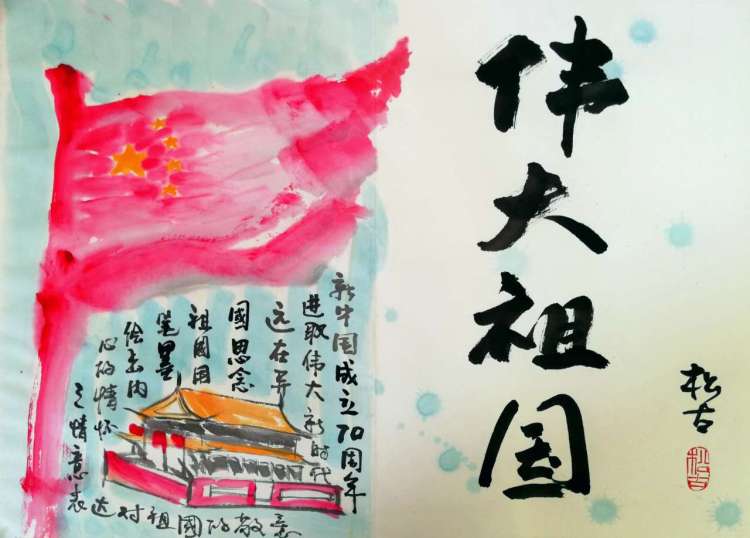 伟大祖国
松古
新中国成立70周年
进取伟大新时代
远在异
國思念
祖國用
笔墨
绘内
心的情怀
之情意表
达对祖國的敬意